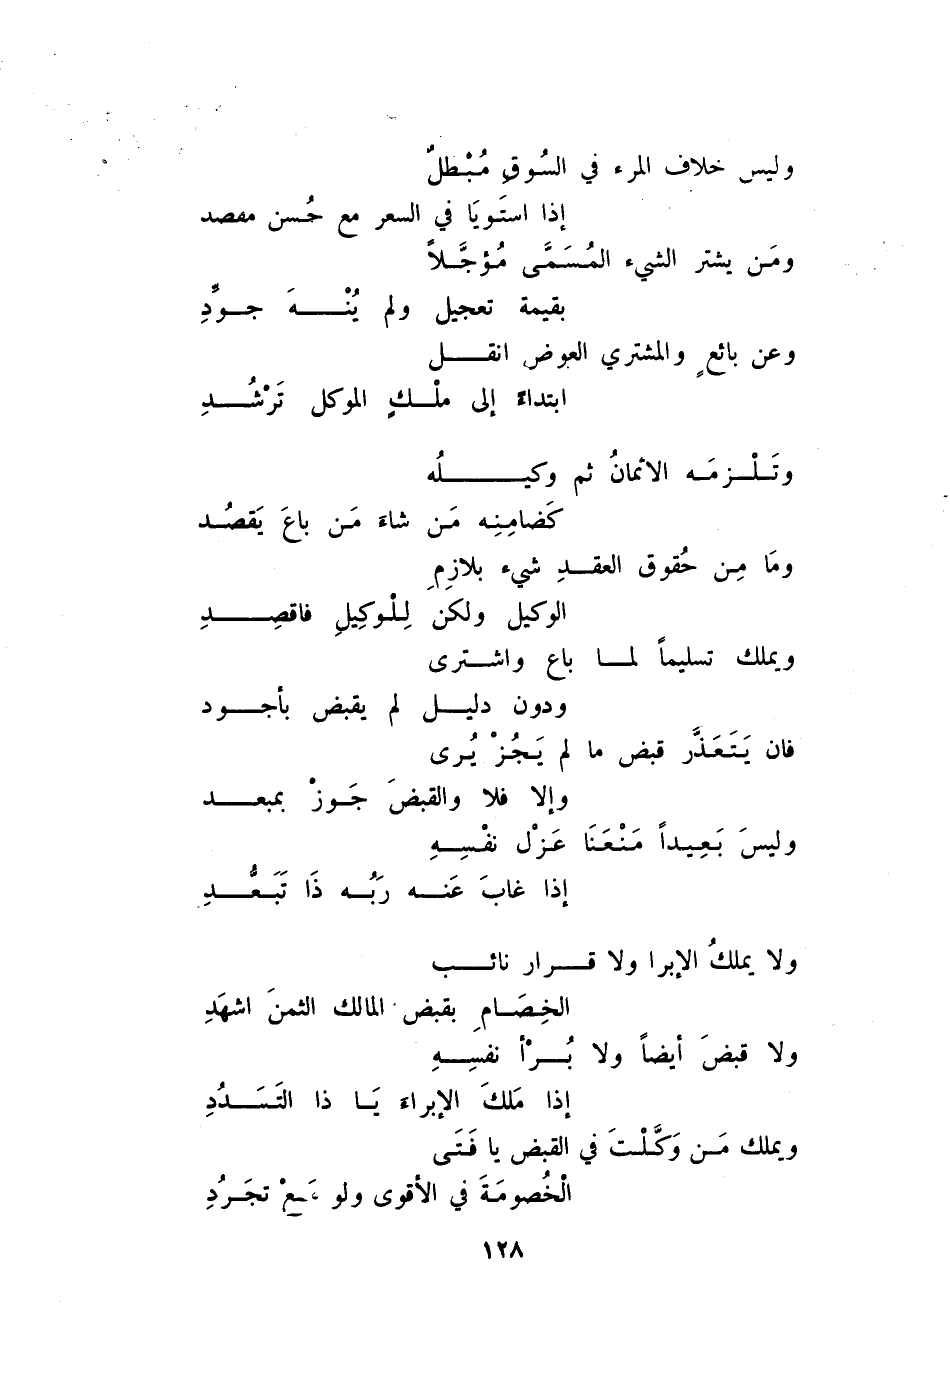 وليس خلاف المرء في السُوقِ مُبْطلٌ
إذا استَويَا في السعر مع حُسن مقصد
ومَن يشتر الشيء المُسَمَّى مُؤجَّلاً
بقيمة تعجيل ولم يُنْهَ جوِّدِ
وعن بائعٍ والمشتري العوض انقل
ابتداءً إلى ملْكِ الموكل تَرْشُدِ
وتَلْزمَه الاثمانُ ثم وكيلُه
كَضامِنِه مَن شاءَ مَن باعَ يَقصُد
ومَا مِن حُقوق العقدِ شيء بلازِمِ
الوكيل ولكن لِلْوكِيلِ فاقصِدِ
ويملك تسليماً لما باع واشترى
ودون دليل لم يقبض بأجود
فان يَتَعَذَّر قبض ما لم يَجُزْ يُرى
وإلا فلا والقبضَ جَوزْ بمبعد
وليسَ بَعِيداً مَنْعَنَا عَزْل نفْسِهِ
إذا غابَ عَنه رَبُه ذَا تَبَعُّدِ
ولا يملكُ الإبرا ولا قرار نائب
الخِصَامِ بقبض المالك الثمنَ اشهَدِ
ولا قبضَ أيضاً ولا بُرْأ نفسِهِ
إذا مَلكَ الإبراء يَا ذا التَسَدُدِ
ويملك مَن وَكَّلْتَ في القبض يا فَتَى
الْخُصومَةَ في الأقوى ولو مَعْ تجَردُِ
١٢٨